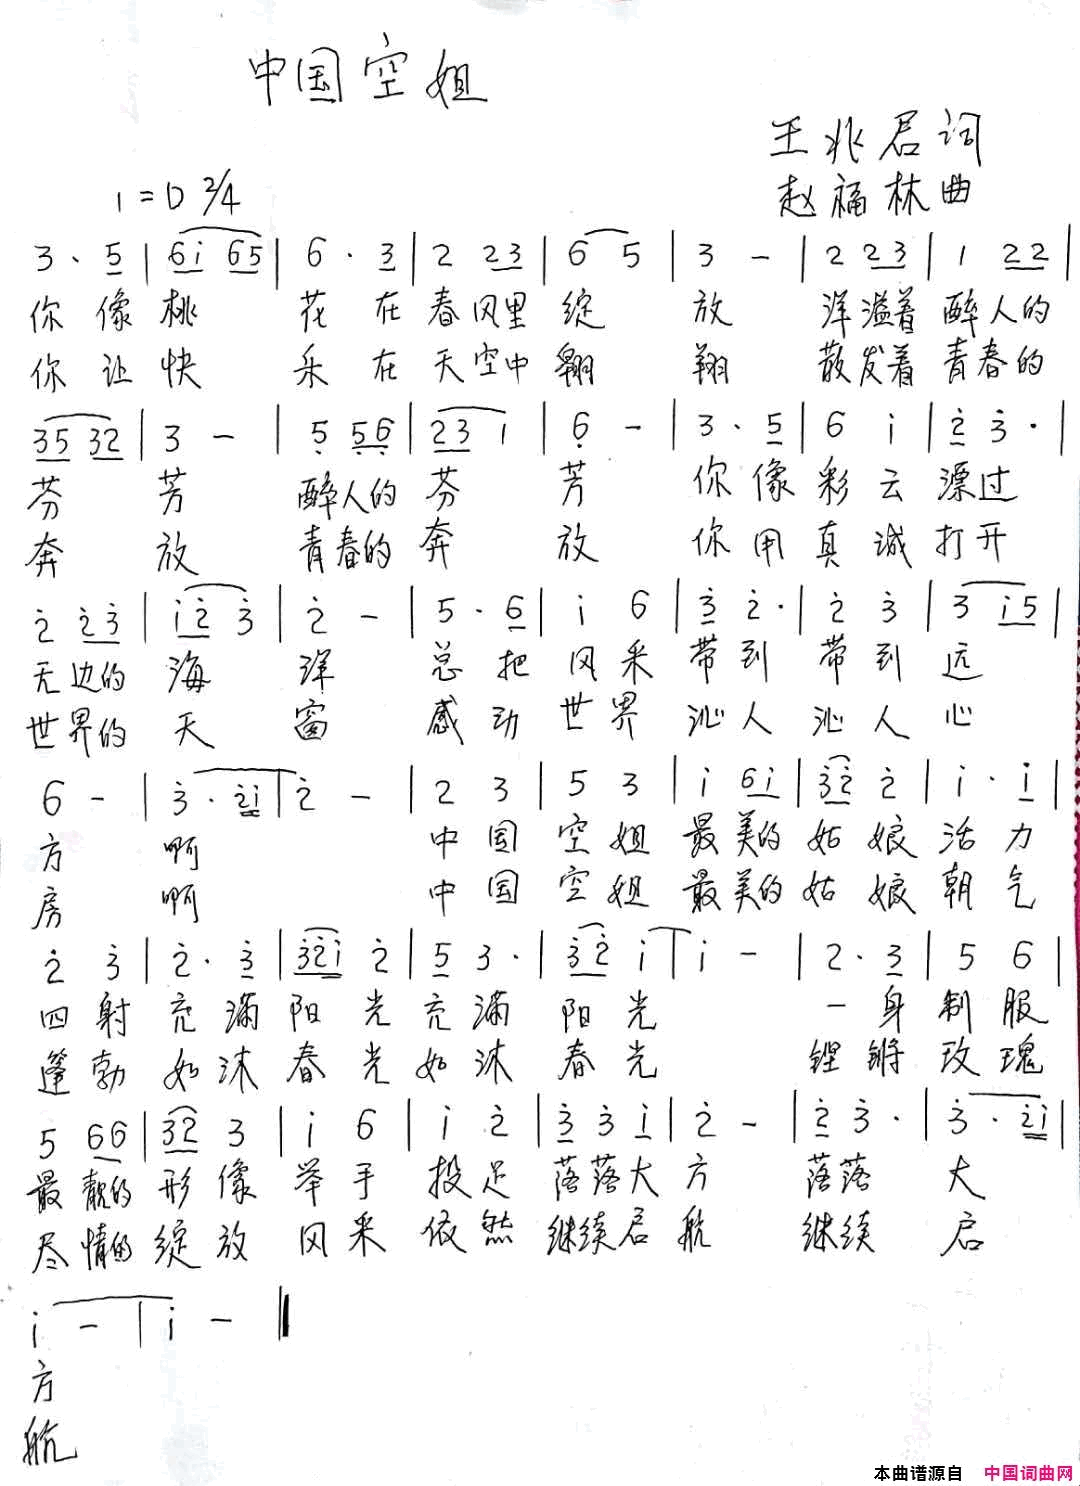 中国空姐
王兆君词
1=D 2/4
赵福林曲
3 · 5 | 6i 65 | 6 · 3 | 2 23 | 6 5 | 3 - | 2 23 | 1 22 |
你像桃 花在春风里绽 放 洋溢着醉人的
你让快 乐在天空中翱 翔 散发着青春的
35 32 | 3 - | 5 56 | 23 1 | 6 - | 3 · 5 | 6 i | 2 3 · |
芬 芳 醉人的芬 芳 你像彩云漂过
奔 放 青春的奔 放 你用真诚打开
2 23 | i2 3 | 2 - | 5 · 6 | i 6 | 3 2 · | 2 3 | 3 i5 |
无边的海 洋 总把风采带到带到远
世界的天 窗 感动世界沁人沁人心
6 - | 3 · 2i | 2 - | 2 3 | 5 3 | i 6i | 32 2 | i · i |
方 啊 中国空姐最美的姑娘活力
房 啊 中国空姐最美的姑娘朝气
2 3 | 2 · 3 | 32i 2 | 5 3 · | 32 i | i - | 2 · 3 | 5 6 |
四射充满阳光充满阳光 一身制服
蓬勃如沐春光如沐春光 铿锵玫瑰
5 66 | 32 3 | i 6 | i 2 | 3 3 i | 2 - | 2 3 · | 3 · 2i |
最靓的形像举手投足落落大方 落落大
尽情的绽放风采依然继续启航 继续启
i - | i - ‖
方
航
本曲谱源自 中国词曲网